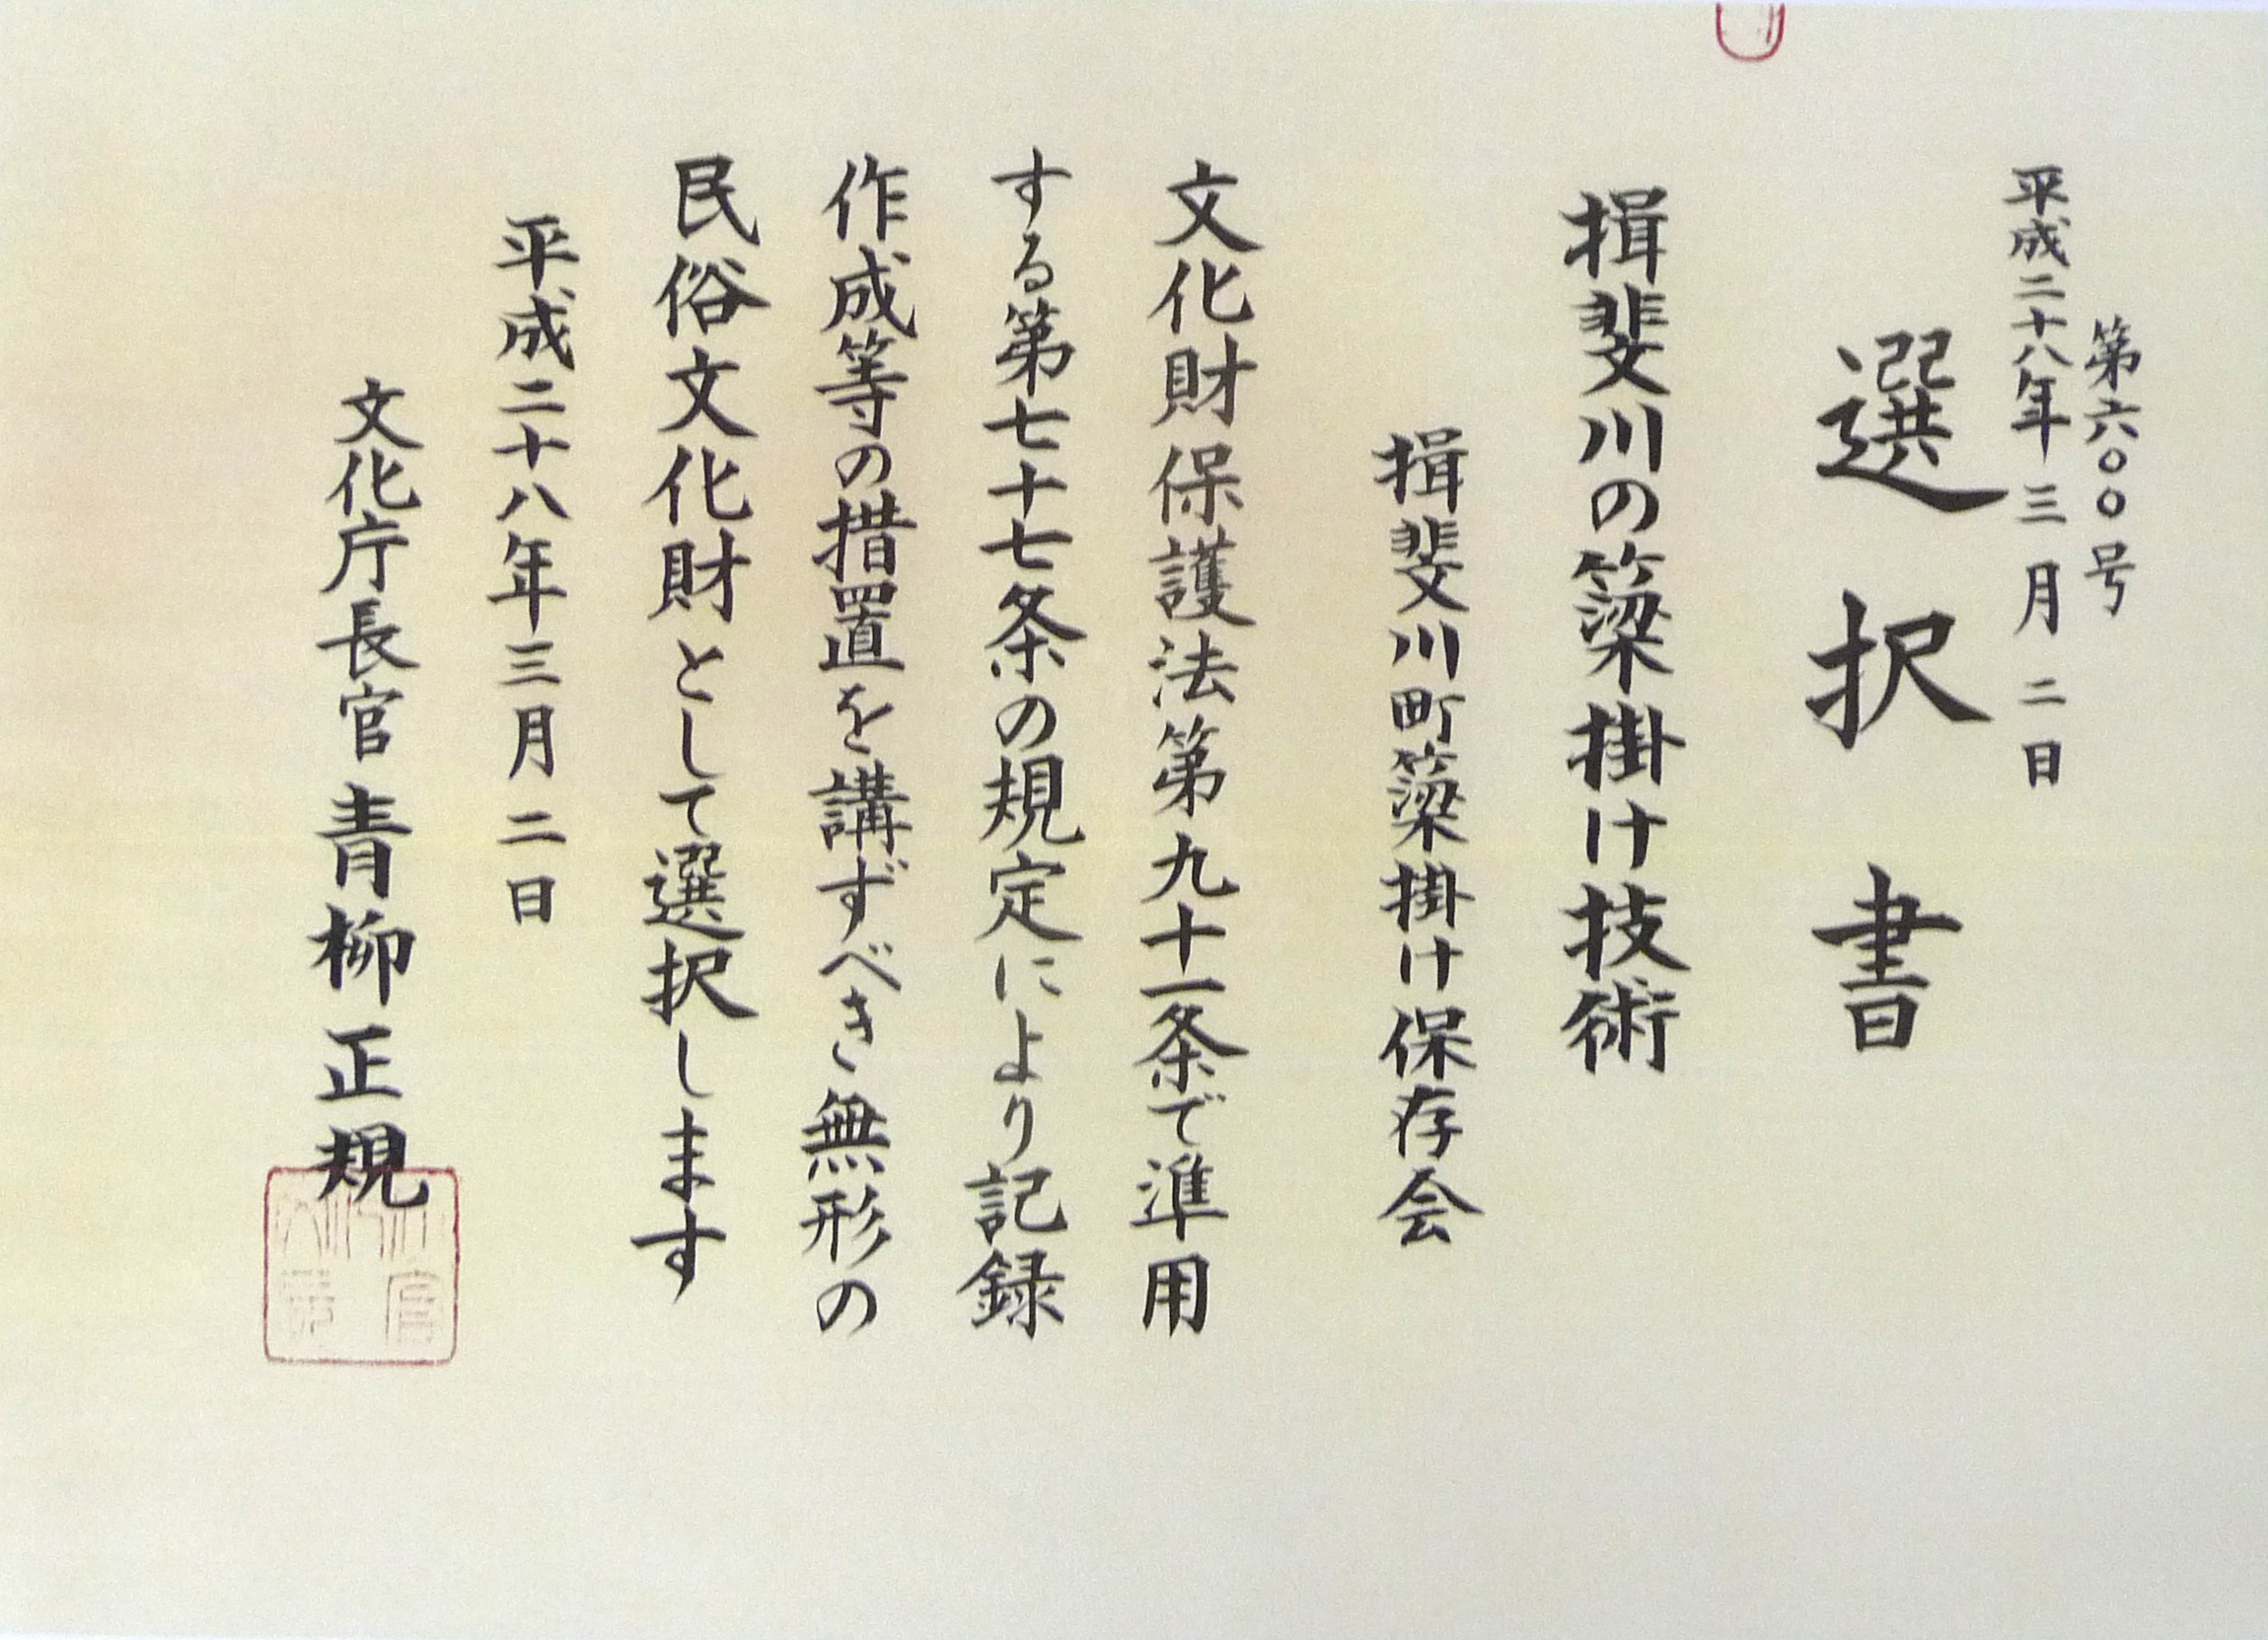 第六〇〇号
平成二十八年三月二日
選択書
揖斐川の簗掛け技術
揖斐川町簗掛け保存会
文化財保護法第九十一条で準用
する第七十七条の規定により記録
作成等の措置を講ずべき無形の
民俗文化財として選択します
平成二十八年三月二日
文化庁長官 青柳正規